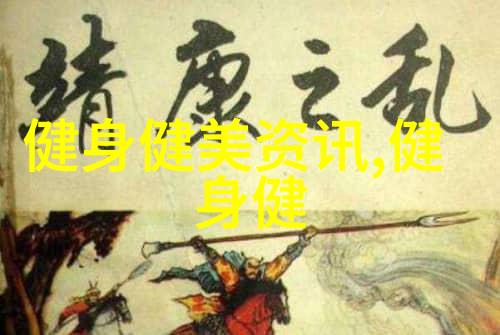 靖康之乱
健身健美资讯,健
身健